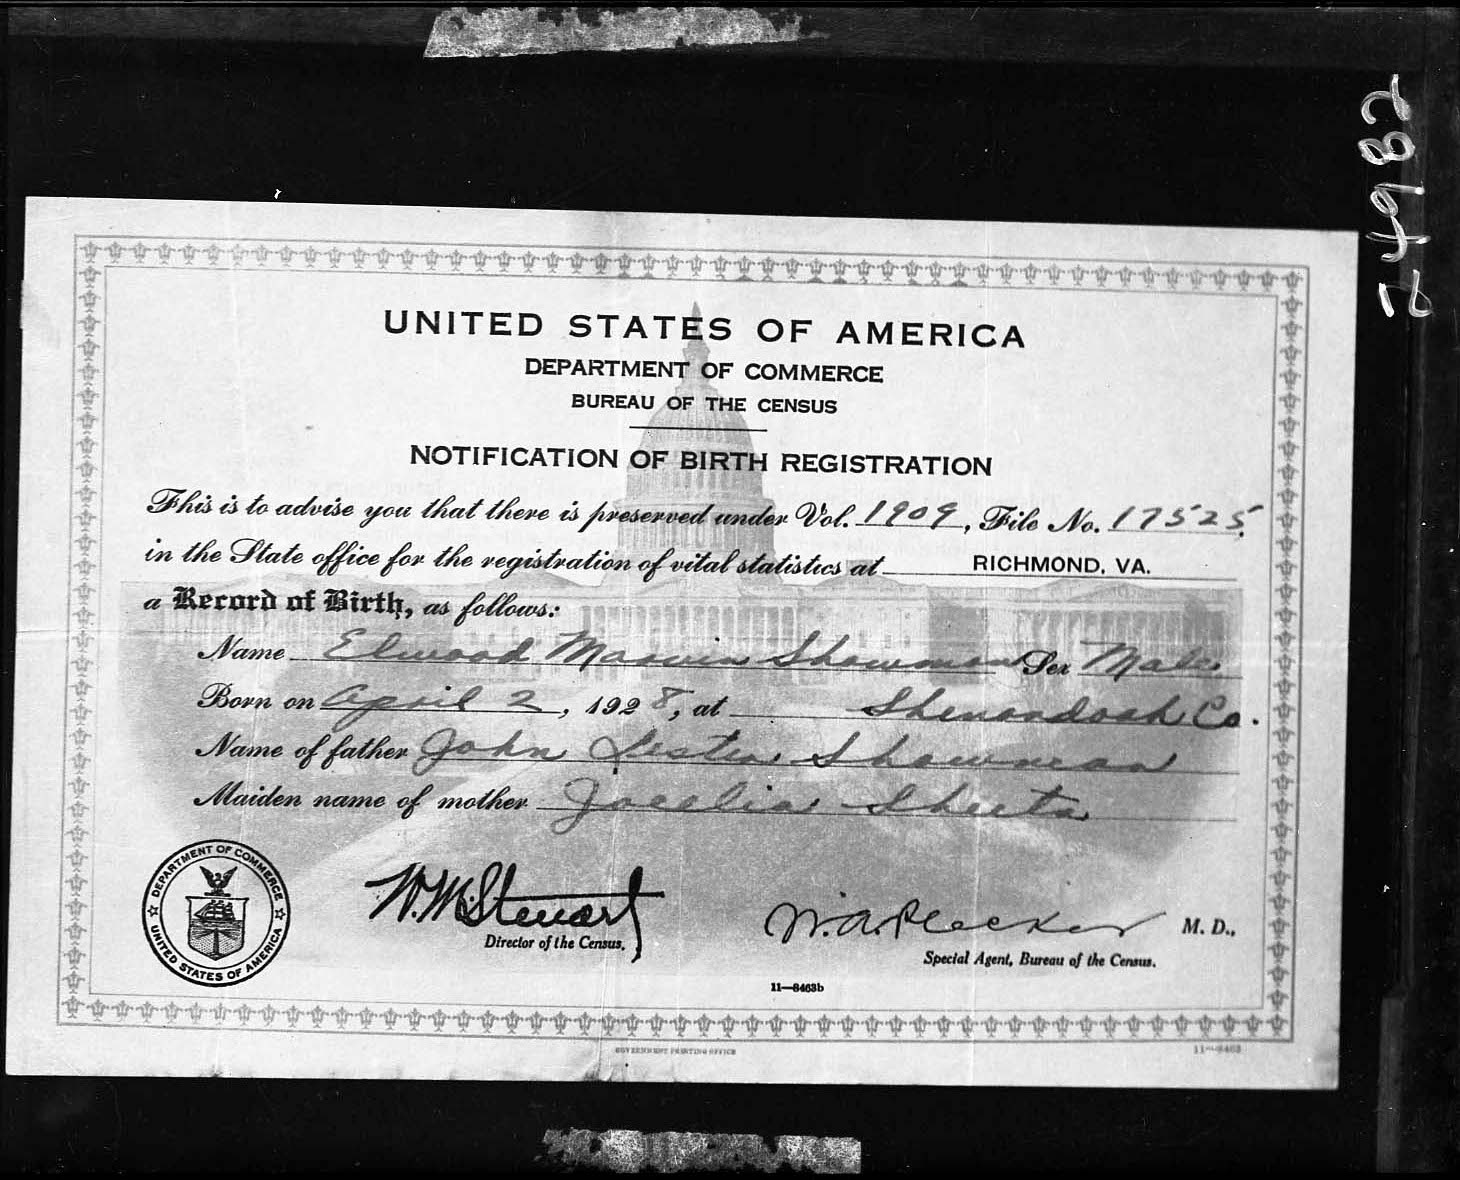 24982
UNITED STATES OF AMERICA
DEPARTMENT OF COMMERCE
BUREAU OF THE CENSUS
NOTIFICATION OF BIRTH REGISTRATION
This is to advise you that there is preserved under Vol. 1909, File No. 17525,
in the State office for the registration of vital statistics at RICHMOND, VA.
a Record of Birth, as follows:
Name Elwood Marvin Showman Sex Male
Born on April 2, 1928, at Shenandoah Co.
Name of father John Lester Showman
Maiden name of mother Jocelia Sheetz
DEPARTMENT OF COMMERCE
UNITED STATES OF AMERICA
W. M. Steuart
Director of the Census.
W. A. Plecker M. D.,
Special Agent, Bureau of the Census.
11—8463b
GOVERNMENT PRINTING OFFICE 11—8463